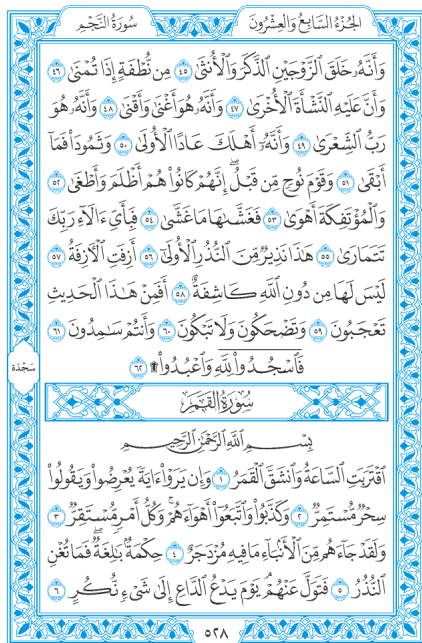 الجُزْءُ السَّابِعُ وَالعِشْرُونَ
سُورَةُ النَّجْمِ
وَأَنَّهُۥ خَلَقَ ٱلزَّوْجَيْنِ ٱلذَّكَرَ وَٱلْأُنثَىٰ ٤٥ مِن نُّطْفَةٍ إِذَا تُمْنَىٰ ٤٦
وَأَنَّ عَلَيْهِ ٱلنَّشْأَةَ ٱلْأُخْرَىٰ ٤٧ وَأَنَّهُۥ هُوَ أَغْنَىٰ وَأَقْنَىٰ ٤٨ وَأَنَّهُۥ هُوَ
رَبُّ ٱلشِّعْرَىٰ ٤٩ وَأَنَّهُۥٓ أَهْلَكَ عَادًا ٱلْأُولَىٰ ٥٠ وَثَمُودَا۟ فَمَآ
أَبْقَىٰ ٥١ وَقَوْمَ نُوحٍ مِّن قَبْلُ ۖ إِنَّهُمْ كَانُوا۟ هُمْ أَظْلَمَ وَأَطْغَىٰ ٥٢
وَٱلْمُؤْتَفِكَةَ أَهْوَىٰ ٥٣ فَغَشَّىٰهَا مَا غَشَّىٰ ٥٤ فَبِأَىِّ ءَالَآءِ رَبِّكَ
تَتَمَارَىٰ ٥٥ هَٰذَا نَذِيرٌ مِّنَ ٱلنُّذُرِ ٱلْأُولَىٰٓ ٥٦ أَزِفَتِ ٱلْءَازِفَةُ ٥٧
لَيْسَ لَهَا مِن دُونِ ٱللَّهِ كَاشِفَةٌ ٥٨ أَفَمِنْ هَٰذَا ٱلْحَدِيثِ
تَعْجَبُونَ ٥٩ وَتَضْحَكُونَ وَلَا تَبْكُونَ ٦٠ وَأَنتُمْ سَٰمِدُونَ ٦١
فَٱسْجُدُوا۟ لِلَّهِ وَٱعْبُدُوا۟ ۩ ٦٢
سَجْدَة
سُورَةُ القَمَرِ
بِسْمِ ٱللَّهِ ٱلرَّحْمَٰنِ ٱلرَّحِيمِ
ٱقْتَرَبَتِ ٱلسَّاعَةُ وَٱنشَقَّ ٱلْقَمَرُ ١ وَإِن يَرَوْا۟ ءَايَةً يُعْرِضُوا۟ وَيَقُولُوا۟
سِحْرٌ مُّسْتَمِرٌّ ٢ وَكَذَّبُوا۟ وَٱتَّبَعُوٓا۟ أَهْوَآءَهُمْ ۚ وَكُلُّ أَمْرٍ مُّسْتَقِرٌّ ٣
وَلَقَدْ جَآءَهُم مِّنَ ٱلْأَنۢبَآءِ مَا فِيهِ مُزْدَجَرٌ ٤ حِكْمَةٌۢ بَٰلِغَةٌ ۖ فَمَا تُغْنِ
ٱلنُّذُرُ ٥ فَتَوَلَّ عَنْهُمْ ۘ يَوْمَ يَدْعُ ٱلدَّاعِ إِلَىٰ شَىْءٍ نُّكُرٍ ٦
٥٢٨